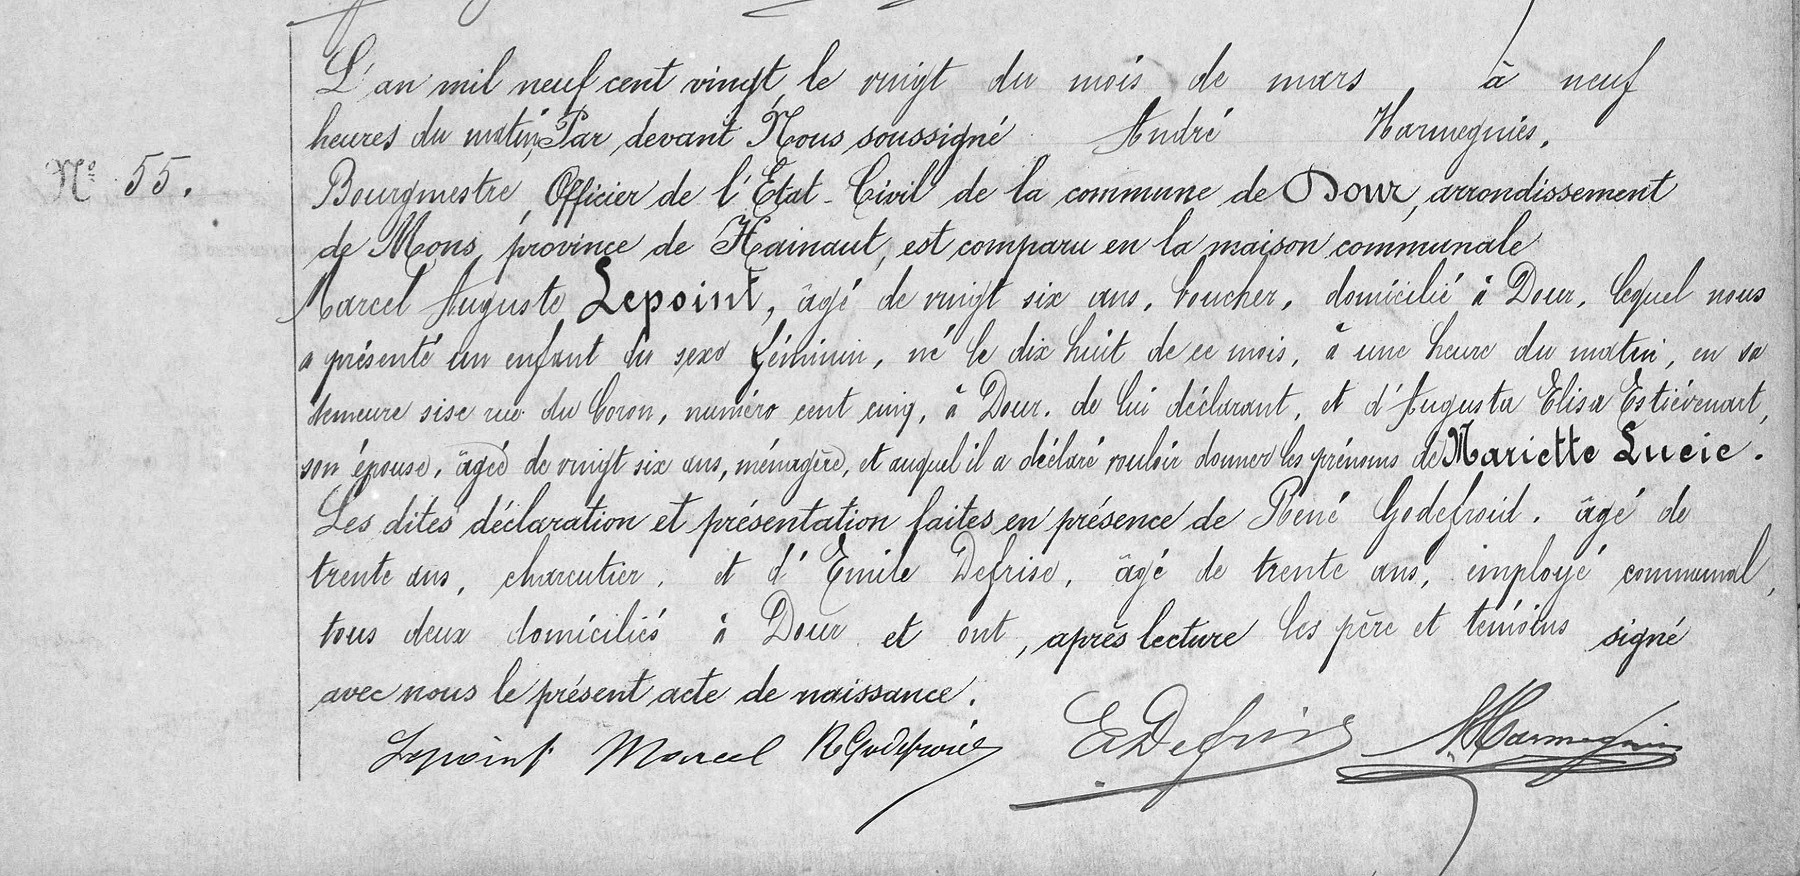 L'an mil neuf cent vingt, le vingt du mois de mars à neuf
heures du matin, Par devant Nous soussigné André Harmegnies,
Nº 55.
Bourgmestre, Officier de l'Etat-Civil de la commune de Dour, arrondissement
de Mons, province de Hainaut, est comparu en la maison communale
Marcel Auguste Lepoint, âgé de vingt six ans, boucher, domicilié à Dour, lequel nous
a présenté un enfant du sexe féminin, né le dix huit de ce mois, à une heure du matin, en sa
demeure sise rue du Coron, numéro cent cinq, à Dour, de lui déclarant, et d'Augusta Elisa Estiévenart,
son épouse, âgée de vingt six ans, ménagère, et auquel il a déclaré vouloir donner les prénoms de Mariette Lucie.
Les dites déclaration et présentation faites en présence de René Godefroid, âgé de
trente ans, charcutier, et d'Emile Defrise, âgé de trente ans, employé communal,
tous deux domiciliés à Dour et ont, après lecture les père et témoins signé
avec nous le présent acte de naissance.
Lepoint Marcel R Godefroid E Defrise A Harmegnies